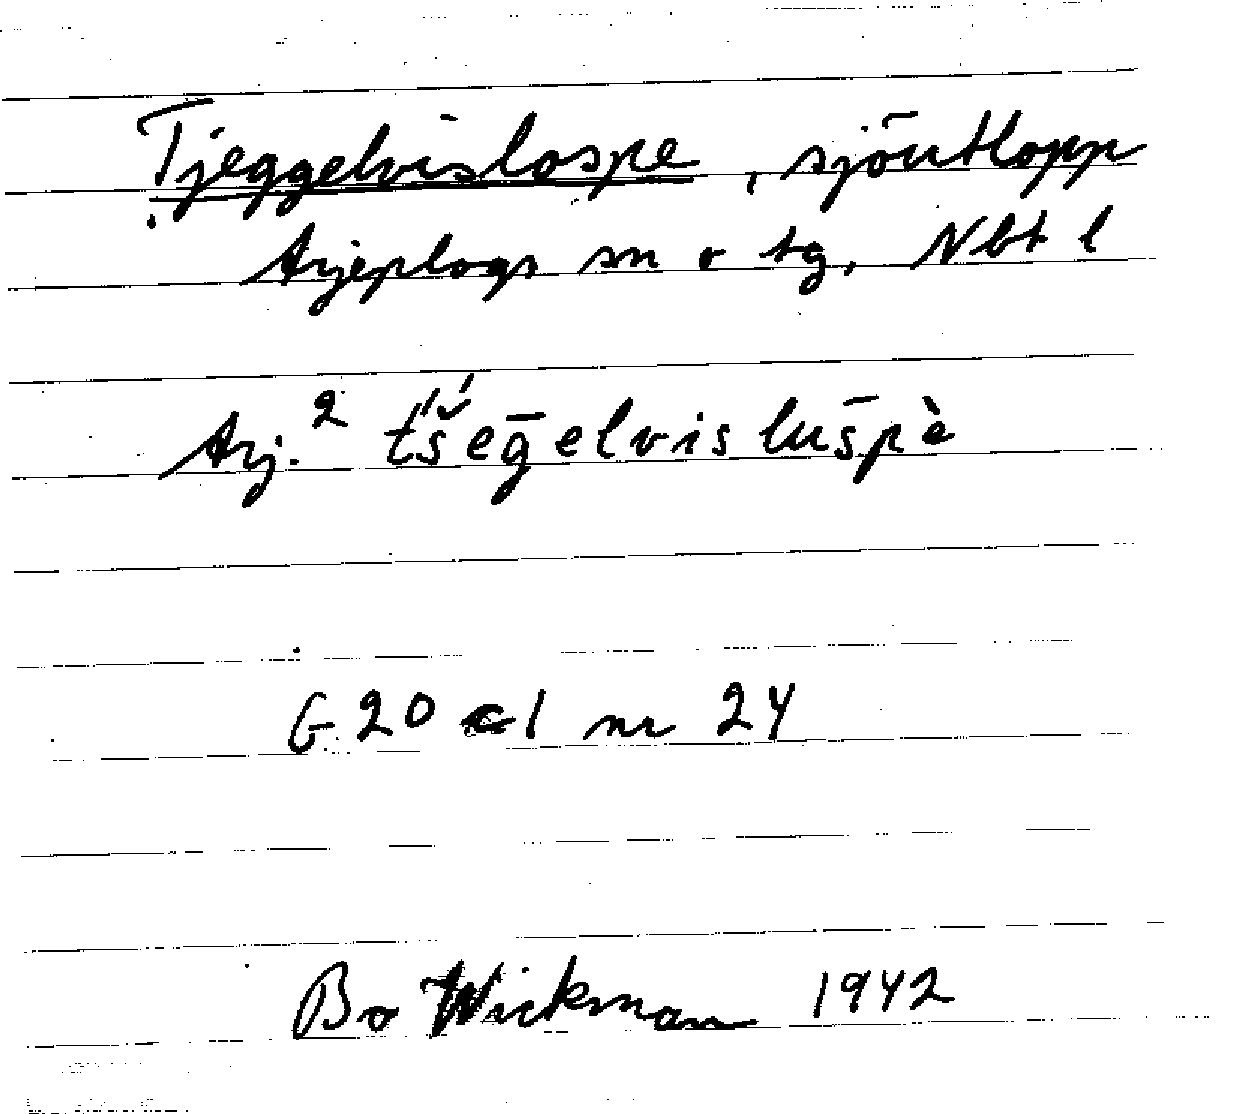 Tjeggelvislospe, sjöutlopp
Arjeplogs sn o tg, Nbt l
Arj.² t́š́eḡelvislus̄pè
G 20 c1 nr 24
Bo Wickman 1942